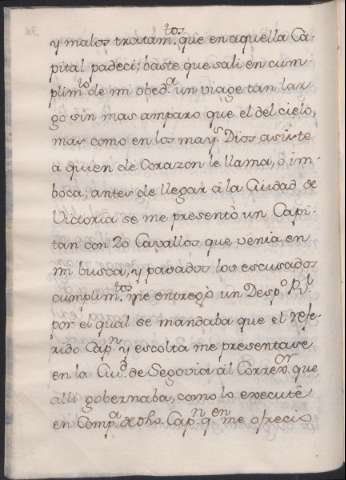 y malos tratam.tos que en aquella Ca-
pital padeci; baste que sali en cum-
plim.to de mi obed.a un viage tan lar-
go sin mas amparo que el del cielo,
mas como en los may.s Dios asiste
a quien de Corazon le llama, ò im-
boca; antes de llegar à la Ciudad de
Victoria se me presentò un Capi-
tan con 20 Cavallos que venia en
mi busca, y pasados los escusados
cumplim.tos me entregò un Desp.o R.l
por el qual se mandaba que el refe-
rido Cap.n y escolta me presentase
en la Ciu.d de Segovia al Correx.or que
alli gobernaba, como lo executè
en Comp.a de dho. Cap.n q.n en me ofreciò